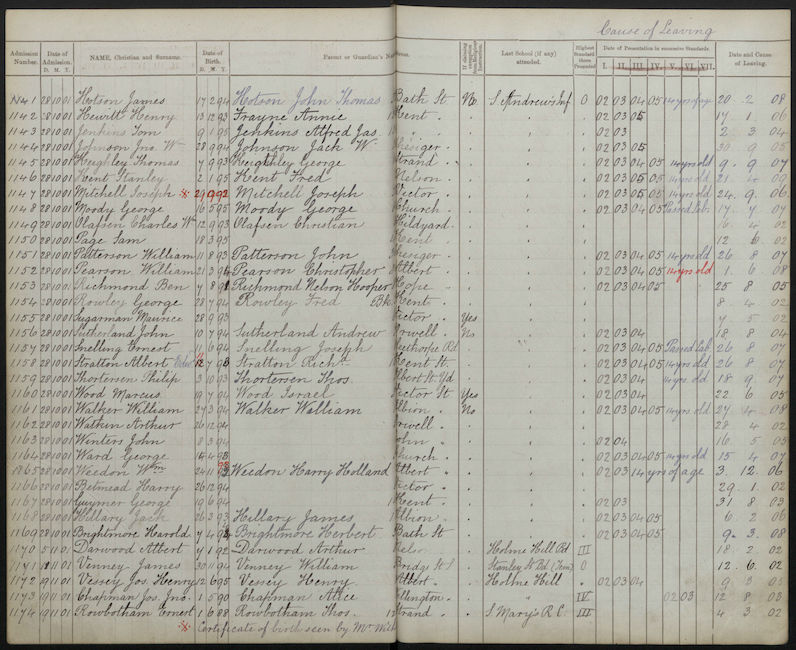 Cause of Leaving
Admission Number. Date of Admission. D. M. Y. NAME, Christian and Surname. Date of Birth. D. M. Y. Parent or Guardian's Last School (if any) attended. Highest Standard there Presented Date of Presentation in successive Standards. I. II. III. IV. V. VI. VII. Date and Cause of Leaving.
1141 28 10 01 Hotson James 17 2 94 Hotson John Thomas Bath St No S. Andrew's Inf 0 02 03 04 05 20 2 08
1142 28 10 01 Hewitt Henry 13 12 93 Frayne Annie Kent 02 03 05 17 1 06
1143 28 10 01 Jenkins Tom 9 1 95 Jenkins Alfred Jas. 02 03 2 3 04
1144 28 10 01 Johnson Jno. Wm 28 9 94 Johnson Jack W 02 03 05 30 9 05
1145 28 10 01 Keighley Thomas 7 9 93 Keighley George Strand 02 03 04 05 14 yrs old 9 9 07
1146 28 10 01 Kent Stanley 2 1 95 Kent Fred Nelson 02 03 05 05 14 yrs old 21 09
1147 28 10 01 Mitchell Joseph 29 9 92 Mitchell Joseph Victor 02 03 05 14 yrs old 24 9 06
1148 28 10 01 Moody George 16 5 95 Moody George Church 02 03 04 05 Passed Lab. 17 7 07
1149 28 10 01 Olafsen Charles Wm 12 9 93 Olafsen Christian Hildyard 16 4 02
1150 28 10 01 Page Sam 18 3 95 Kent 12 6 02
1151 28 10 01 Patterson William 11 8 93 Patterson John 02 03 04 05 14 yrs old 26 8 07
1152 28 10 01 Pearson William 21 3 94 Pearson Christopher Albert 02 03 04 05 14 yrs old 1 6 08
1153 28 10 01 Richmond Ben 7 8 91 Richmond Nelson Hooper Hope 02 03 04 05 25 8 05
1154 28 10 01 Rowley George 28 7 94 Rowley Fred Kent 8 4 02
1155 28 10 01 Sugarman Maurice 28 9 93 Victor Yes 7 5 02
1156 28 10 01 Sutherland John 10 7 94 Sutherland Andrew Orwell No 02 03 04 18 8 04
1157 28 10 01 Snelling Ernest 11 6 94 Snelling Joseph 02 03 04 05 Passed Lab 26 8 07
1158 28 10 01 Stratton Albert 7 93 Stratton Richd Kent St. 02 03 04 05 14 yrs old 26 8 07
1159 28 10 01 Shortersen Philip 3 10 93 Shortersen Thos. Albert St Yd 02 03 04 14 yrs old 18 9 07
1160 28 10 01 Wood Marcus 19 7 94 Wood Israel Victor St Yes 02 03 04 22 6 05
1161 28 10 01 Walker William 27 3 94 Walker William Albion No 02 03 04 05 14 yrs old 27 4 08
1162 28 10 01 Watkin Arthur 26 12 94 Orwell 28 4 02
1163 28 10 01 Winters John 8 3 94 John 02 04 16 5 05
1164 28 10 01 Ward George 15 4 93 Church 02 03 04 05 14 yrs old 15 4 07
1165 28 10 01 Weedon Wm 24 11 Weedon Harry Holland Albert 02 03 14 yrs of age 3. 12. 06
1166 28 10 01 Betmead Harry 26 12 94 Victor 29. 1. 02
1167 28 10 01 Gwymer George 19 6 94 Kent 02 03 31 8 03
1168 28 10 01 Hillary Jack 26 3 93 Hillary James Albion 02 03 04 05 6 2 06
1169 28 10 01 Brightmore Harold 7 4 Brightmore Herbert Bath St 02 03 04 05 9. 3. 08
1170 5 11 01 Darwood Albert 7 1 92 Darwood Arthur Holme Hill Bd III 18 2 02
1171 11 01 Venney James 30 11 94 Venney William Bridge St Stanley St Bd 0 12. 6. 02
1172 9 11 01 Vessey Jos. Henry 12 6 95 Vessey Henry Albert Holme Hill 02 03 04 9 3 05
1173 9 11 01 Chapman Jos. Jno. 1 5 90 Chapman Alice IV 02 03 12 8 03
1174 19 11 01 Rowbotham Ernest 1 6 88 Rowbotham Thos. Strand S. Mary's R.C. III 4 3 02
Certificate of birth seen by Mr